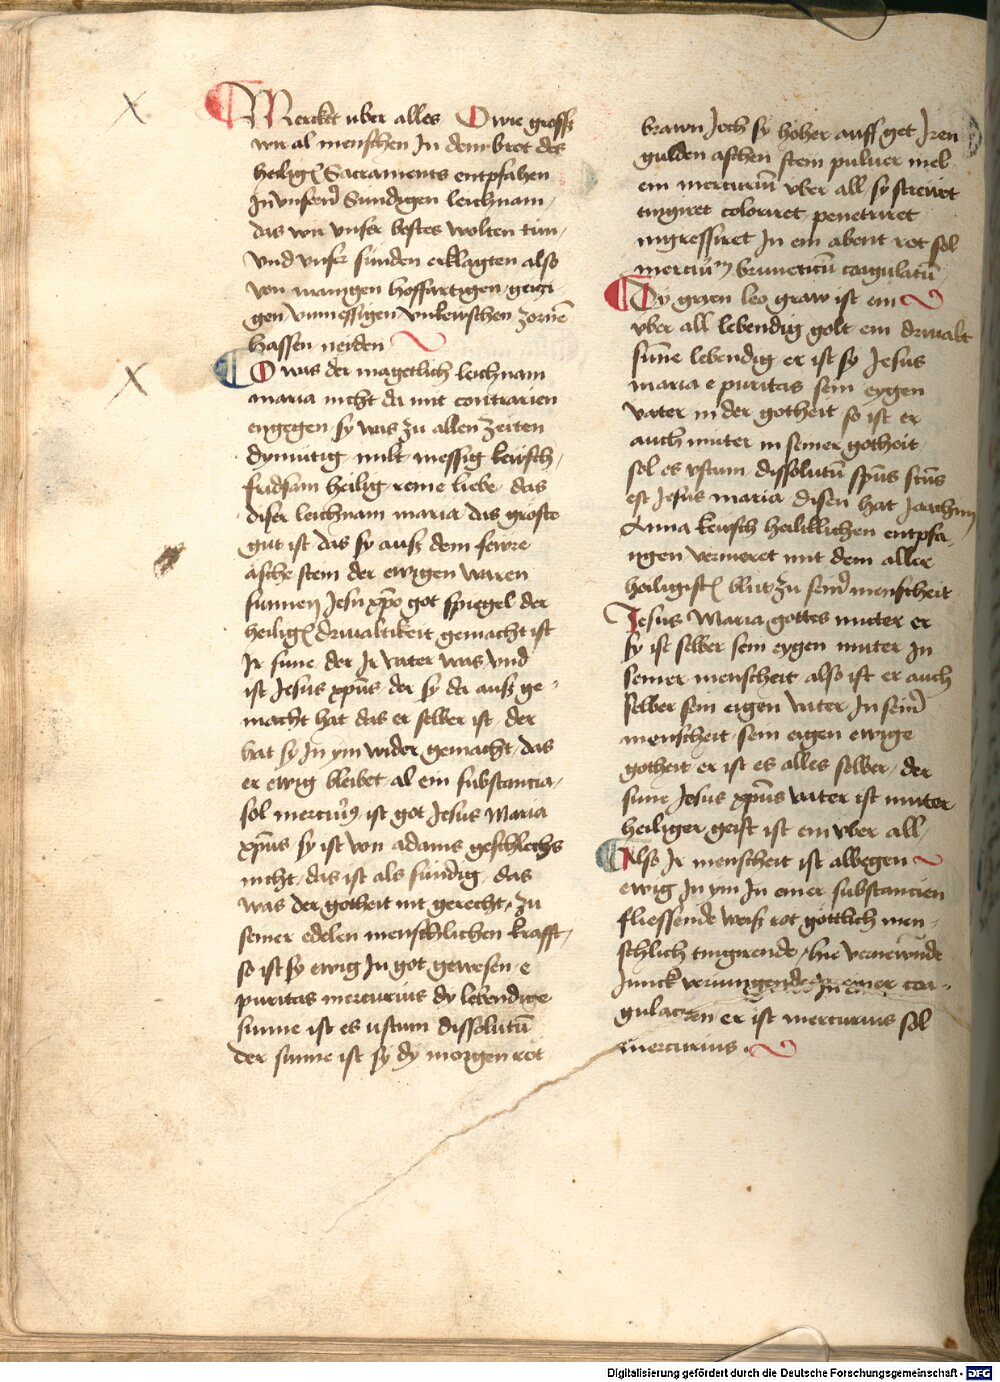 Merckt uber alles O wie gross
wir al menschen In dem brot des
heilig͂ Sacraments entpfahen
In unser̃ Sundigen leichnam
das wir unser bestes wolten tun
und unser sunden erklagten also
von mangen hoffartigen geizi
gen unmessigen unkewschen zorñe
hassen neiden
O was der magetlich leichnam
maria nicht da mit contrarien
engegen sy was zu allen zeiten
dymutig milt messig kewsch
fridsam heilig reine liebe das
diser leichnam maria das groste
gut ist das sy auß dem fewre
asche stein der ewigen waren
sunnen Jesu xp̃o got spiegel der
heilig͂ drivaltikeit gemacht ist
Ir sune der Ir vater was und
ist Jesus xpũs der sy da auß ge
macht hat das er selber ist der
hat sy In ym wider gemacht das
er ewig bleibet al ein substancia
sol mercuri9 ist got Jesus Maria
xpũs sy ist von adams geschlechs
nicht das ist als sundig das
was der gotheit nit gerecht zu
seiner edelen menschlichen krafft
so ist sy ewig In got gewesen e
puritas mercurius dy lebendige
sunne ist es ustum dissolutũ
der sunne ist sy dy morgen rot
brawn Joch sy hoher auff get Iren
gulden aschen stein puluer mel
ein mercuriũ vber all sy strewet
tingiret coloriret penetriret
ingressiret In ein abent rot sol
mercuriũ bruneticũ coagulatũ
Dy gruen leo graw ist ein
vber all lebendig golt ein drivalt
sunne lebendig er ist sy Jesus
maria e puritas sein eygen
vater in der gotheit so ist er
auch muter in seiner gotheit
sol es vstum dissolutũ spũs scũs
est Jesus maria disen hat Joachim
Anna kewsch heiliklichen entpfa
ngen vermeret mit dem aller
heiligist͂ blut zu sein̄ menscheit
Jesus Maria gottes muter er
sy ist selber sein eygen muter In
seiner menscheit also ist er auch
selber sein eigen vater In sein̄
menscheit sein eigen ewige
gotheit er ist es alles selber der
sune Jesus xpũs vater ist muter
heiliger geist ist ein vber all
Also Ir menscheit ist albegen
ewig In ym In einer substancien
fliessende weiß rot gottlich men
schlich tingirende hie vernewnde
Junck veriungende In einer coa
gulacien er ist mercurius sol
mercurius
Digitalisierung gefördert durch die Deutsche Forschungsgemeinschaft - DFG